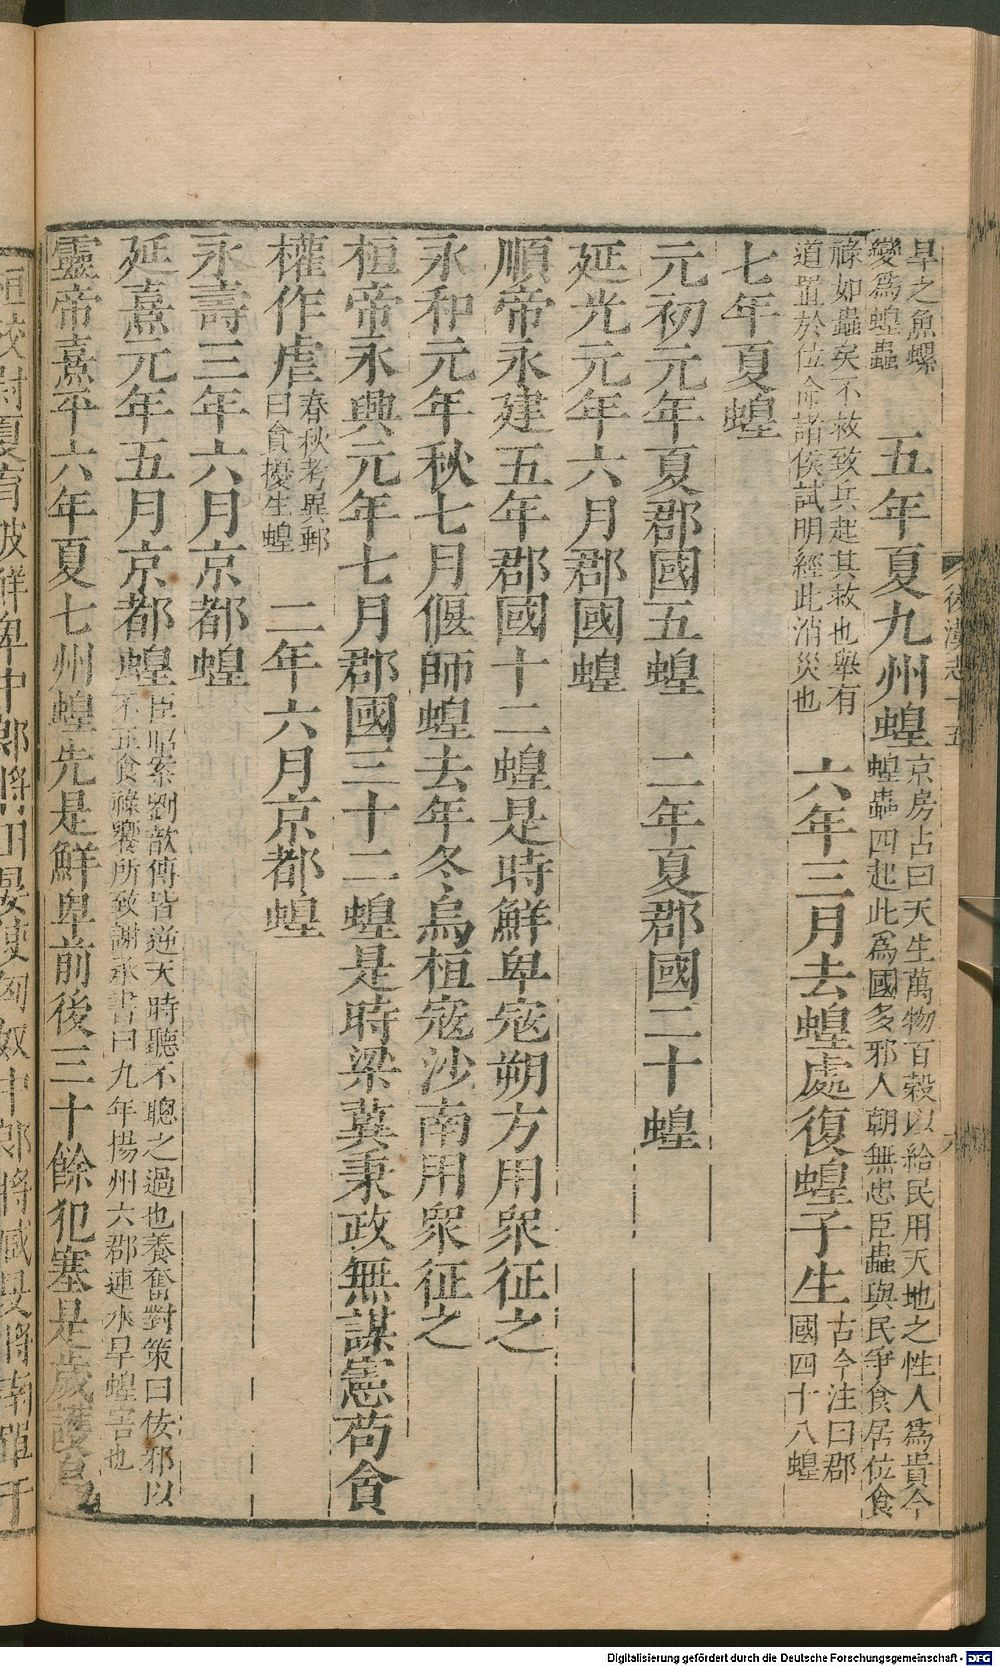 旱之魚螺
變爲蝗蟲
五年夏九州蝗
京房占曰天生萬物百穀以給民用天地之性人爲貴今
蝗蟲四起此爲國多邪人朝無忠臣蟲與民爭食居位食
祿如蟲矣不救致兵起其救也舉有
道置於位命諸侯試明經此消災也
六年三月去蝗處復蝗子生
古今注曰郡
國四十八蝗
七年夏蝗
元初元年夏郡國五蝗 二年夏郡國二十蝗
延光元年六月郡國蝗
順帝永建五年郡國十二蝗是時鮮卑寇朔方用眾征之
永和元年秋七月偃師蝗去年冬烏桓寇沙南用眾征之
桓帝永興元年七月郡國三十二蝗是時梁冀秉政無謀憲苟貪
權作虐
春秋考異郵
曰貪擾生蝗
二年六月京都蝗
永壽三年六月京都蝗
延熹元年五月京都蝗
臣昭案劉歆傳皆逆天時聽不聰之過也養奮對策曰佞邪以
不正食祿饗所致謝承書曰九年揚州六郡連水旱蝗害也
靈帝熹平六年夏七州蝗先是鮮卑前後三十餘犯塞是歲護烏
桓校尉夏育破鮮卑中郎將田晏使匈奴中郎將臧旻將南單于
後漢志十五
六
Digitalisierung gefördert durch die Deutsche Forschungsgemeinschaft - DFG